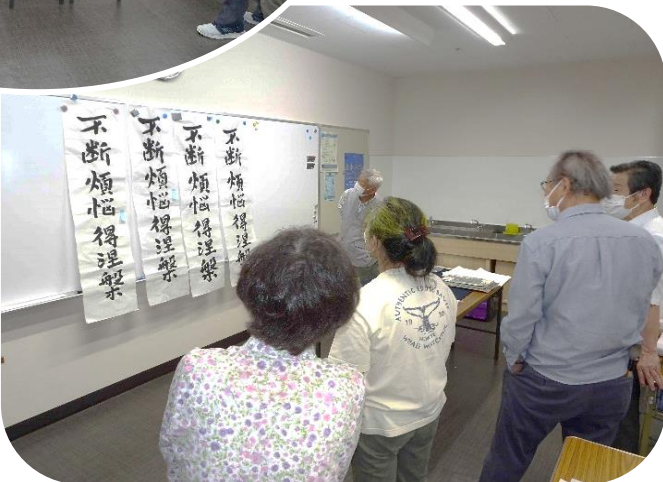 不断煩悩得涅槃
不断煩悩得涅槃
不断煩悩得涅槃
不断煩悩得涅槃
AUTHENTIC
19